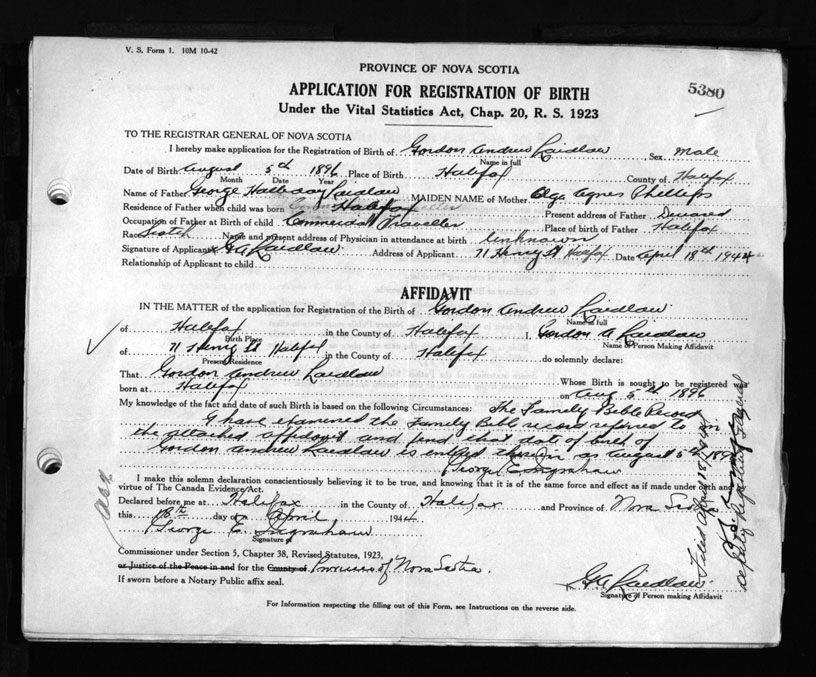 V. S. Form 1. 10M 10-42
PROVINCE OF NOVA SCOTIA
5380
APPLICATION FOR REGISTRATION OF BIRTH
Under the Vital Statistics Act, Chap. 20, R. S. 1923
TO THE REGISTRAR GENERAL OF NOVA SCOTIA
I hereby make application for the Registration of Birth of Gordon Andrew Laidlaw Sex Male
Name in full
Date of Birth August 5th 1896 Place of Birth Halifax County of Halifax
Month Date Year
Name of Father George Halliday Laidlaw MAIDEN NAME of Mother Olga Agnes Phillips
Residence of Father when child was born Halifax Present address of Father Deceased
Occupation of Father at Birth of child Commercial Traveller Place of birth of Father Halifax
Race Scotch Name and present address of Physician in attendance at birth Unknown
Signature of Applicant x GA Laidlaw Address of Applicant 71 Henry St Halifax Date April 18th 1944
Relationship of Applicant to child
AFFIDAVIT
IN THE MATTER of the application for Registration of the Birth of Gordon Andrew Laidlaw
Name in full
of Halifax in the County of Halifax I, Gordon A Laidlaw
Birth Place Name of Person Making Affidavit
of 71 Henry St Halifax in the County of Halifax do solemnly declare:
Present Residence
That Gordon Andrew Laidlaw Whose Birth is sought to be registered was
born at Halifax on Aug 5th 1896
My knowledge of the fact and date of such Birth is based on the following Circumstances: The Family Bible Record
I have examined the Family Bible record referred to in
the attached affidavit and find that date of birth of
Gordon Andrew Laidlaw is entered therein as August 5th 1896
George E Ingraham
I make this solemn declaration conscientiously believing it to be true, and knowing that it is of the same force and effect as if made under oath and
virtue of The Canada Evidence Act.
Declared before me at Halifax in the County of Halifax and Province of Nova Scotia
this 18th day of April 1944
George E. Ingraham
Signature of
Commissioner under Section 5, Chapter 38, Revised Statutes, 1923,
or Justice of the Peace in and for the County of Province of Nova Scotia.
If sworn before a Notary Public affix seal.
GA Laidlaw
Signature of Person making Affidavit
For Information respecting the filling out of this Form, see Instructions on the reverse side.
Filed April 18/1944
Deputy Registrar General